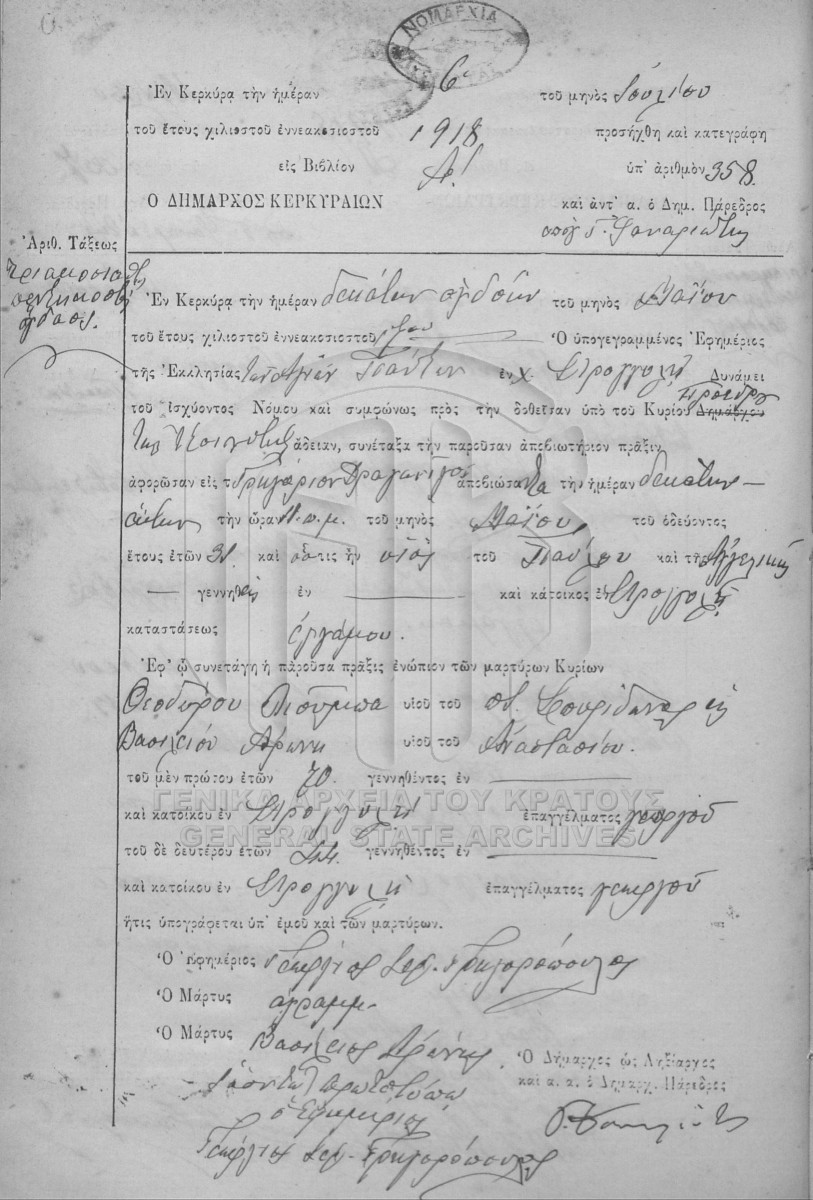 ΝΟΜΑΡΧΙΑ
Ἐν Κερκύρᾳ τὴν ἡμέραν 6 τοῦ μηνὸς Ἰουλίου
τοῦ ἔτους χιλιοστοῦ ἐννεακοσιοστοῦ 1918 προσήχθη καὶ κατεγράφη
εἰς Βιβλίον Α! ὑπ' ἀριθμὸν 358
Ο ΔΗΜΑΡΧΟΣ ΚΕΡΚΥΡΑΙΩΝ καὶ ἀντ' α. ὁ Δημ. Πάρεδρος
Ἀριθ. Τάξεως
Ἐν Κερκύρᾳ τὴν ἡμέραν δεκάτην ὀγδόην τοῦ μηνὸς Μαΐου
τοῦ ἔτους χιλιοστοῦ ἐννεακοσιοστοῦ Ὁ ὑπογεγραμμένος Ἐφημέριος
τῆς Ἐκκλησίας τῶν Ἁγίων Πάντων ἐν χ. Στρογγυλῇ Δυνάμει
τοῦ ἰσχύοντος Νόμου καὶ συμφώνως πρὸς τὴν δοθεῖσαν ὑπὸ τοῦ Κυρίου Δημάρχου Προέδρου
τῆς Κοινότητος ἄδειαν, συνέταξα τὴν παροῦσαν ἀποβιωτήριον πρᾶξιν
ἀφορῶσαν εἰς τ Γρηγόριον ἀποβιώσαντα τὴν ἡμέραν δεκάτην
τὴν ὥραν π.μ. τοῦ μηνὸς Μαΐου τοῦ ὁδεύοντος
ἔτους ἐτῶν 31 καὶ ὅστις ἦν υἱὸς τοῦ Παύλου καὶ τῆς Ἀγγελικῆς
γεννηθεὶς ἐν καὶ κάτοικος ἐν Στρογγυλῇ
καταστάσεως ἐγγάμου.
Ἐφ' ᾧ συνετάγη ἡ παροῦσα πρᾶξις ἐνώπιον τῶν μαρτύρων Κυρίων
Θεοδώρου υἱοῦ τοῦ ποτ. Σπυρίδωνος
Βασιλείου Ἀρώνη υἱοῦ τοῦ Ἀναστασίου.
τοῦ μὲν πρώτου ἐτῶν 70 γεννηθέντος ἐν
καὶ κατοίκου ἐν Στρογγυλῇ ἐπαγγέλματος γεωργοῦ
τοῦ δὲ δευτέρου ἐτῶν 44 γεννηθέντος ἐν
καὶ κατοίκου ἐν Στρογγυλῇ ἐπαγγέλματος γεωργοῦ
ἥτις ὑπογράφεται ὑπ' ἐμοῦ καὶ τῶν μαρτύρων.
Ὁ Ἐφημέριος Γεώργιος Γρηγορόπουλος
Ὁ Μάρτυς ἀγράμμ.
Ὁ Μάρτυς Βασίλειος Ἀρώνης
Ὁ Δήμαρχος ὡς Ληξίαρχος
καὶ α. α. ὁ Δημαρχ. Πάρεδρος
ὁ Ἐφημέριος
Γεώργιος Γρηγορόπουλος
ΓΕΝΙΚΑ ΑΡΧΕΙΑ ΤΟΥ ΚΡΑΤΟΥΣ
GENERAL STATE ARCHIVES